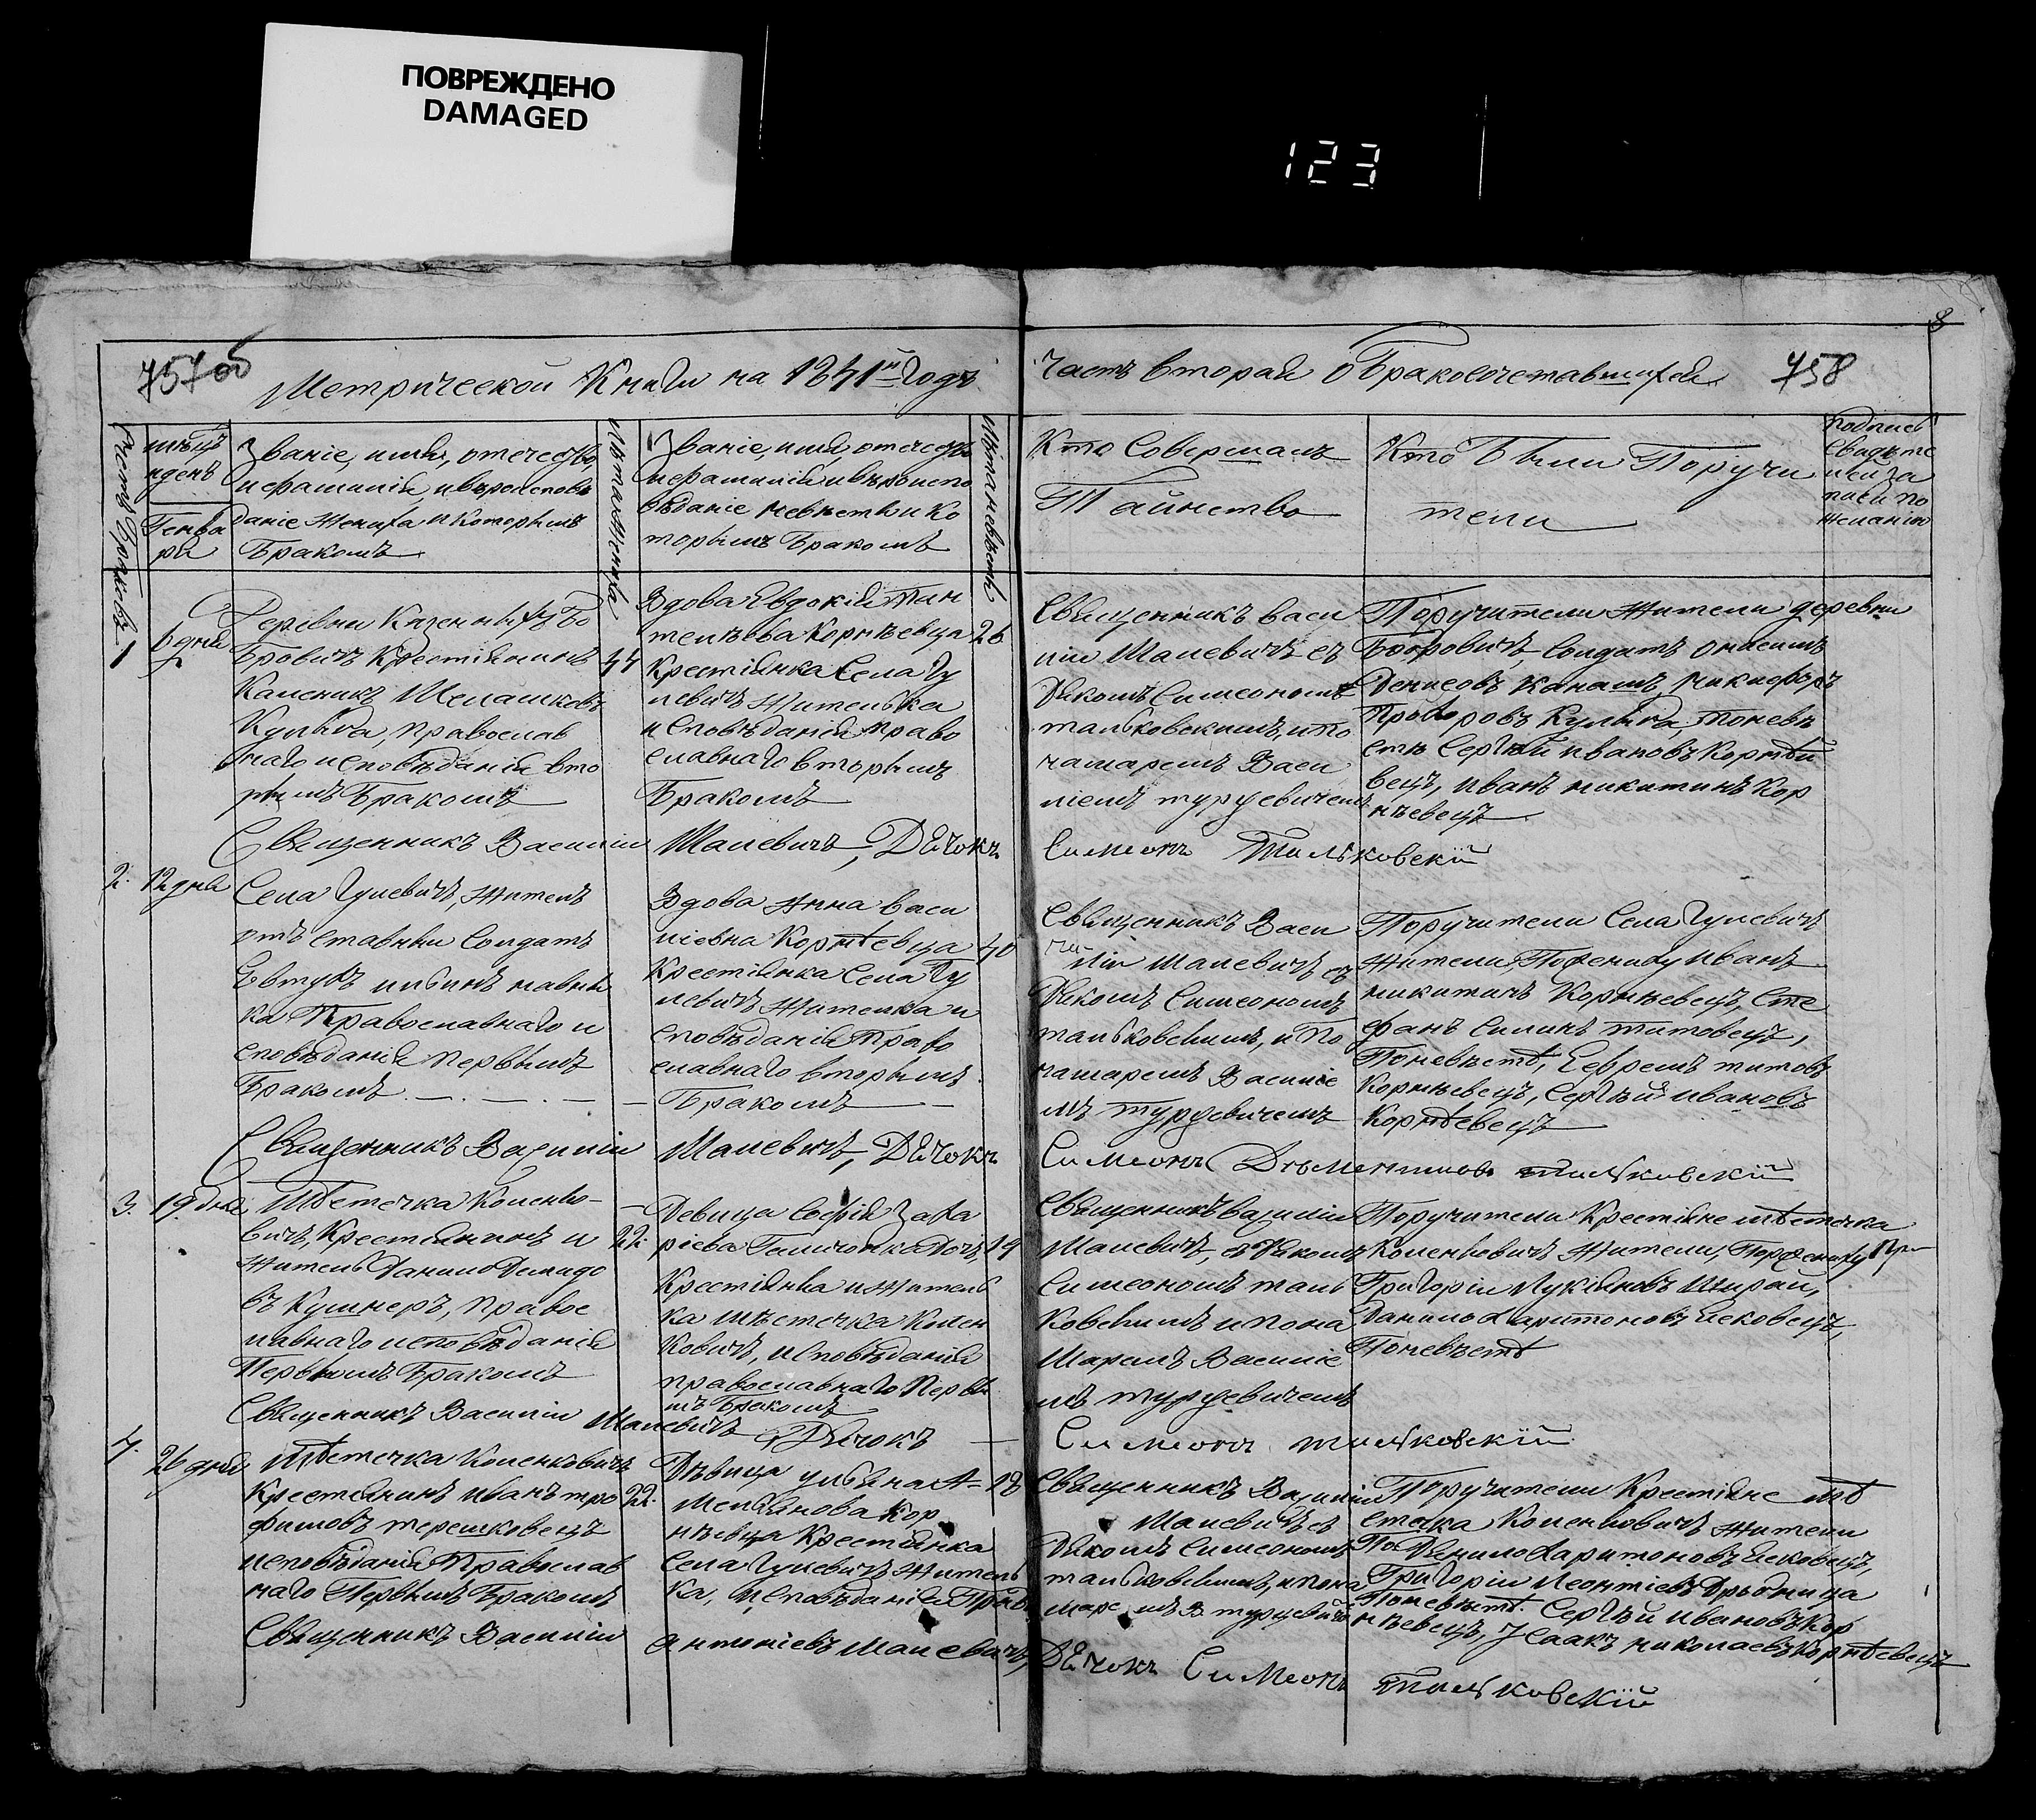 ПОВРЕЖДЕНО
DAMAGED
123
8
757об
Метрической Книги на 1841й Годъ
Часть вторая о Бракосочетавшихся
758
Счетъ Браковъ
мѣсяцъ
и день
Генва
ря
Званіе, имя, отечество
и фамилія, и вѣроисповѣ
даніе жениха и которымъ
Бракомъ
Лѣта жениха
Званіе, имя, отечество
и фамилія и вѣроиспо
вѣданіе невѣсты и ко
торымъ Бракомъ
Лѣта невѣсты
Кто Совершалъ
Таинство
Кто Были Поручи
тели
Подпись
Свидѣте
лей за
писи по
желанію
1
6 дня
Деревни Казенныхъ Бо
Бровичъ Крестіянинъ
Каленикъ
Кулѣда, православ
наго исповѣданія вто
рымъ Бракомъ
44
Вдова Евдокія Пан
телѣева Корнѣевца
Крестіянка Села Гу
левичъ Жителька
исповѣданія право
славнаго вторымъ
Бракомъ
26
Священникъ Васи
лій Малевичъ съ
Дякомъ Симеономъ
тальковскимъ, и по
намаремъ Васи
ліемъ турцевичемъ
Поручители Жители деревни
Бобровичъ, Солдатъ
Денисовъ Канашъ, Никифоръ
Прохоровъ Кулѣда, Поневѣ
стѣ Сергѣй Ивановъ Корнѣй
вецъ, Иванъ Никитинъ Кор
нѣевецъ
Священникъ Василій Малевичъ, Дячокъ Симеонъ Тальковскій
2.
12 дня
Села Гулевичъ, Житель
отъ ставный Солдатъ
Евтухъ
ка Православнаго и
сповѣданія первымъ
Бракомъ
Вдова Анна Васи
ліовна Корнѣевца
Крестіянка Села Гу
левичъ Жителька и
сповѣданія Право
славнаго вторымъ
Бракомъ
40
Священникъ Васи
лій Малевичъ съ
Дякомъ Симеономъ
тальковскимъ, и По
намаремъ Василіе
мъ турцевичемъ
Поручители Села Гулевичъ
Жители, Поженіху Иванъ
Никитинъ Корнѣевецъ, Сте
фанъ Силинъ Титовецъ,
Поневѣстѣ, Ефремъ Титовъ
Корнѣевецъ, Сергѣй Ивановъ
Корнѣевецъ
Священникъ Василій Малевичъ, Дячокъ Симеонъ Тальковскій
3.
19. дня
Мѣстечка Коленко-
вичъ, Крестіянинъ и
Житель Данило Демидо
въ Кушнеръ, Правос
лавнаго исповѣданія
Первымъ Бракомъ
22
Девица Софія Заха
ріева
Крестіянка и Житель
ка мѣстечка Колен
ковичъ, исповѣданія
православнаго Первы
мъ Бракомъ
19
Священникъ Василій
Малевичъ, съ Дякомъ
Симеономъ таль
ковскимъ и пона
маремъ Василіе
мъ турцевичемъ
Поручители Крестіяне мѣстечка
Коленковичъ Жители, Поженіху
Григорій Лукіяновъ Шпрай,
Данило Харитоновъ Есковецъ,
Поневѣстѣ
Священникъ Василій Малевичъ Дячокъ Симеонъ тальковскій
4.
26 дня
Мѣстечка Коленковичъ
Крестіянинъ Иванъ тро
фимовъ терешковецъ
исповѣданія Православ
наго Первымъ Бракомъ
22.
Дѣвица Уліяна А-
меліянова Кор
нѣевца Крестіянка
Села Гулевичъ Житель
ка, исповѣданія Прав
18
Священникъ Василій
Малевичъ съ
Дякомъ Симеономъ
тальковскимъ, и пона
маремъ В турцевичем
Поручители Крестіяне мѣ
стечка Коленковичъ Жители
По Данило Харитоновъ Есковецъ,
Григорій Леонтіевъ
Поневѣстѣ. Сергѣй Ивановъ Кор
нѣевецъ, Ісаакъ Николаевъ Корнѣевецъ
Священникъ Василій Антоніевъ Малевичъ, Дячокъ Симеонъ тальковскій